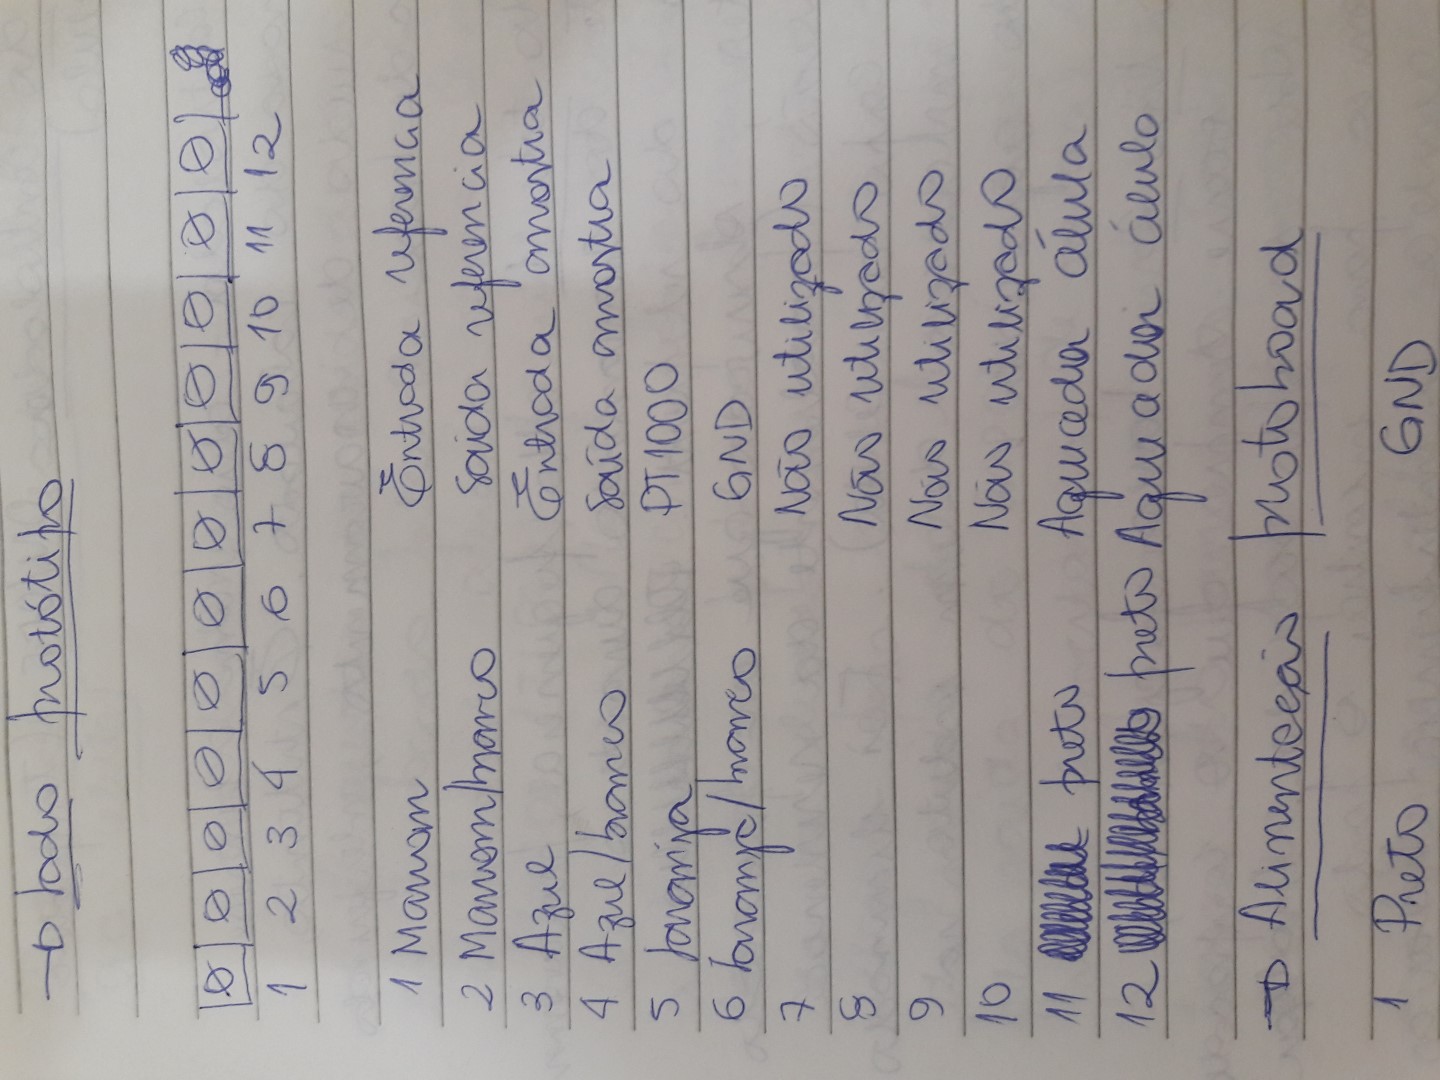 → Lado protótipo
1 2 3 4 5 6 7 8 9 10 11 12
1 Marrom Entrada referencia
2 Marrom/branco Saída referencia
3 Azul Entrada amostra
4 Azul/branco Saída amostra
5 laranja PT1000
6 laranja/branco GND
7 Não utilizado
8 Não utilizado
9 Não utilizado
10 Não utilizado
11 preto Aquecedor célula
12 preto Aquecedor célula
→ Alimentação protoboard
1 Preto GND